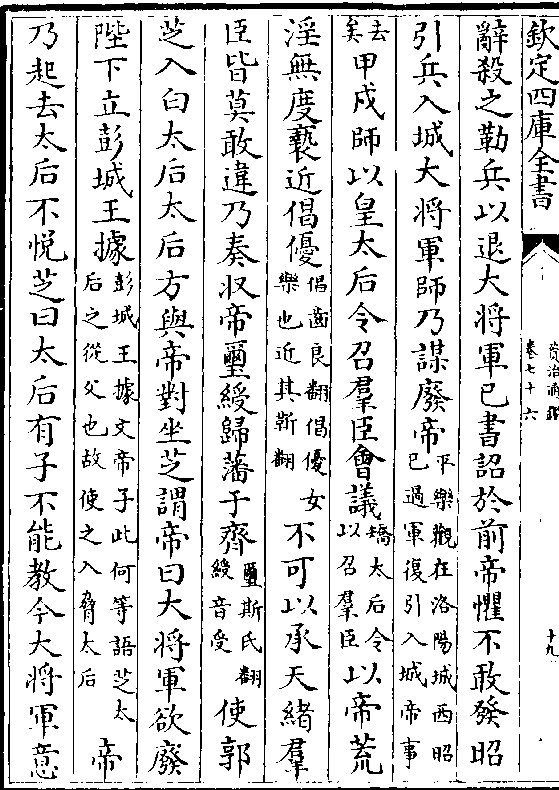 欽定四庫全書
資治通鑑
卷七十六
十九
辭殺之勒兵以退大将軍已書詔於前帝懼不敢發昭
引兵入城大将軍師乃謀廢帝平樂觀在洛陽城西昭已過軍復引入城帝事
去矣甲戌師以皇太后令召羣臣會議矯太后令以召羣臣以帝荒
淫無度褻近倡優倡齒良翻倡優女樂也近其靳翻不可以承天緒羣
臣皆莫敢違乃奏收帝璽綬歸藩于齊璽斯氏翻綬音受使郭
芝入白太后太后方與帝對坐芝謂帝曰大将軍欲廢
陛下立彭城王據彭城王據文帝子此何等語芝太后之從父也故使之入脅太后帝
乃起去太后不悅芝曰太后有子不能教今大将軍意